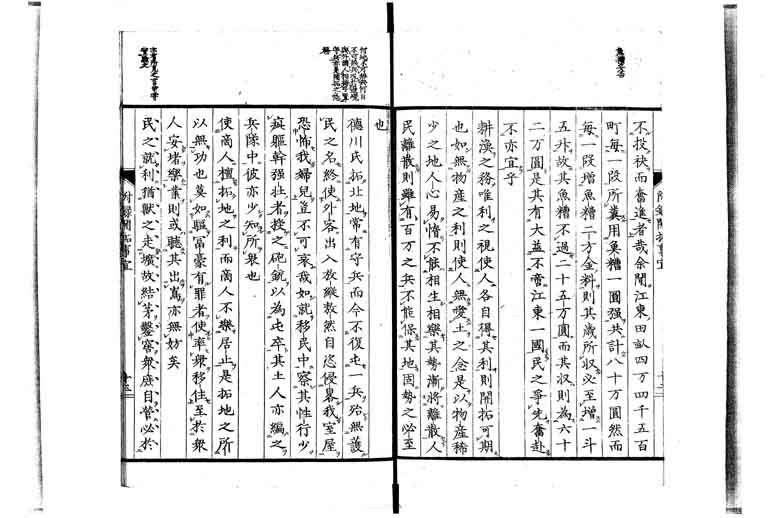 不投袂而奮進者哉余聞江東田畝四万四千五百
町每一段所糞用魚糟一圓强共計八十万圓然而
每一段增魚糟二方金料則其歲所収必至增一斗
五升故其魚糟不過二十五万圓而其収則為六十
二万圓是其有大益不啻江東一國民之爭先奮赴
不亦宜乎
耕漁之務唯利之視使人各自得其利則開拓可期
也如無物產之利則使人無愛土之念是以物產稀
少之地人心易惰不能相生相樂其勢漸將離散人
民離散則雖有百万之兵不能保其地固勢之必至
也
德川氏拓北地常有守兵而今不復屯一兵殆無護
民之名終使外客出入放縱敖然自恣侵畧我室屋
恐怖我婦兒豈不可哀哉如就移民中察其性行少
軀幹强壯者授之砲銃以為屯卒其土人亦編之
兵隊中彼亦少知所衆也
使商人擅拓地之利而商人不樂居止是拓地之所
以無功也莫如驅冨豪有罪者使率衆移住至於衆
人安堵樂業則或聽其出嵩亦無妨矣
民之就利猶獸之走壙故結茅鑿窨衆庶自營必於
附録開拓事宜